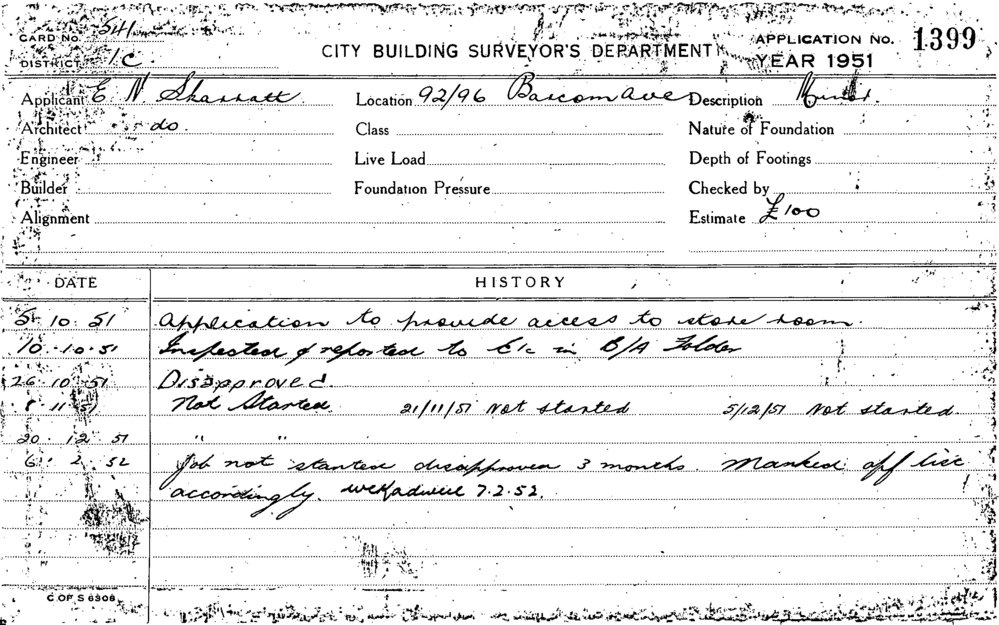 CARD No. 541
DISTRICT 1C.
CITY BUILDING SURVEYOR'S DEPARTMENT
APPLICATION No. 1399
YEAR 1951
Applicant E N. Sharratt Location 92/96 Barcom Ave Description Minor.
Architect do. Class Nature of Foundation
Engineer Live Load Depth of Footings
Builder Foundation Pressure Checked by
Alignment Estimate £100
DATE HISTORY
5. 10. 51 Application to provide access to store room.
10. 10. 51 Inspected & reported to in B/A Folder
26. 10. 51 Disapproved.
8. 11. 51 Not Started. 21/11/51 Not started 5/12/51 Not started.
20. 12. 51 " "
6. 2. 52 Job not started disapproved 3 months. Marked off list
accordingly. 7.2.52.
C OF S 6908